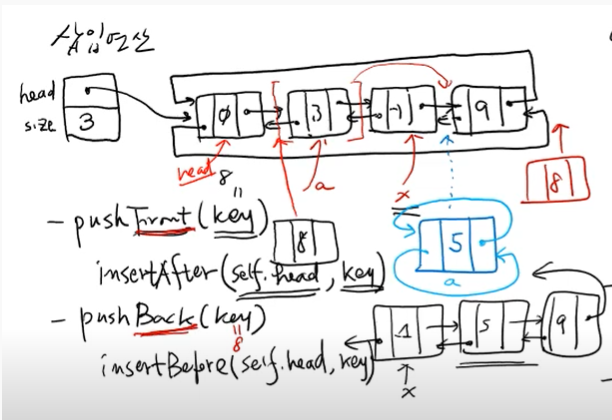 삽입연산
head
size 3
∅ 3 -1 9
head
8
a
x
8
- pushFront(key)
8
5
a
insertAfter(self.head, key)
- pushBack(key)
8
-1 5 9
insertBefore(self.head, key)
x